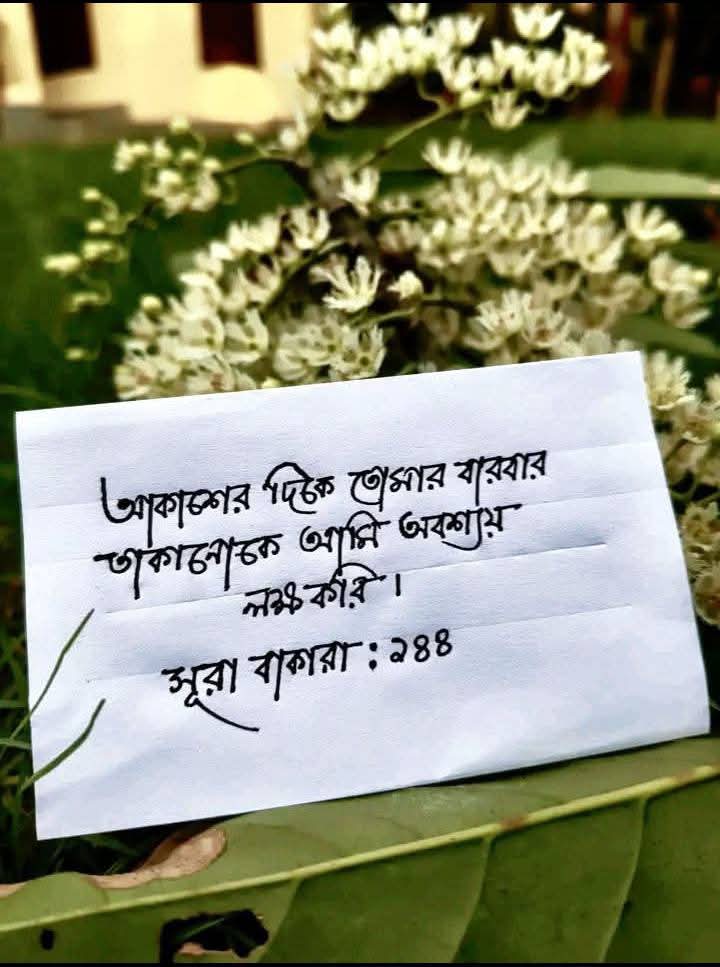 আকাশের দিকে তোমার বারবার
তাকানোকে আমি অবশ্যয়
লক্ষ করি ।
সূরা বাকারা : ১৪৪